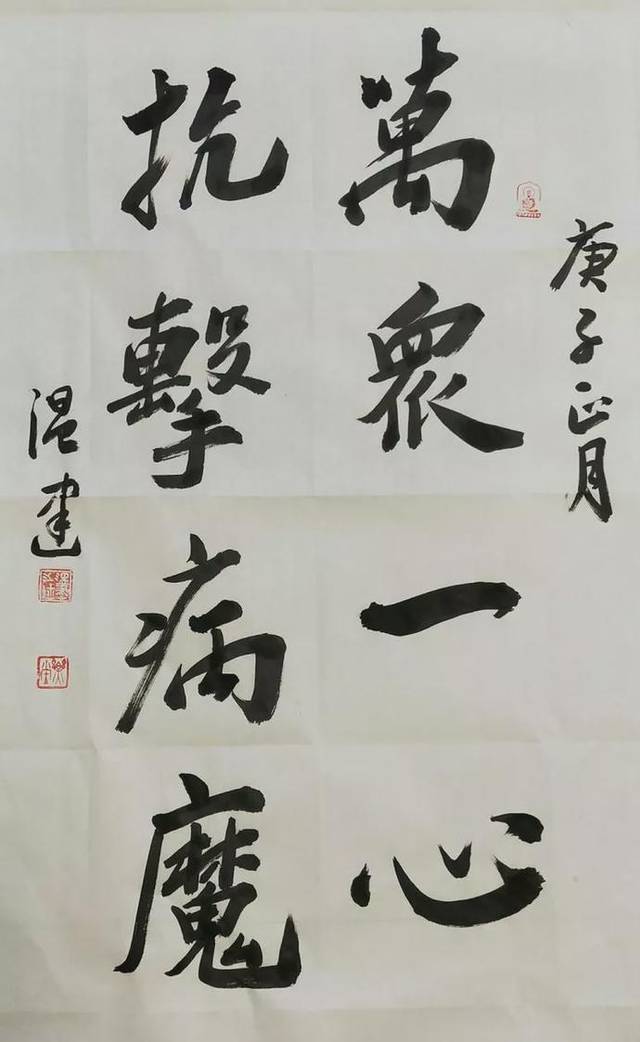 庚子正月
萬眾一心
抗擊病魔
温建